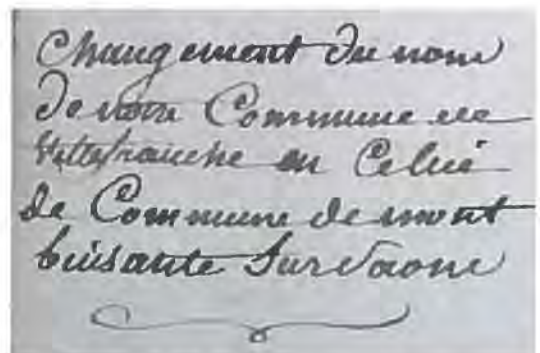 Changement du nom
de notre Commune de
Villefranche en Celui
de Commune de mont
luisante Sur Saone